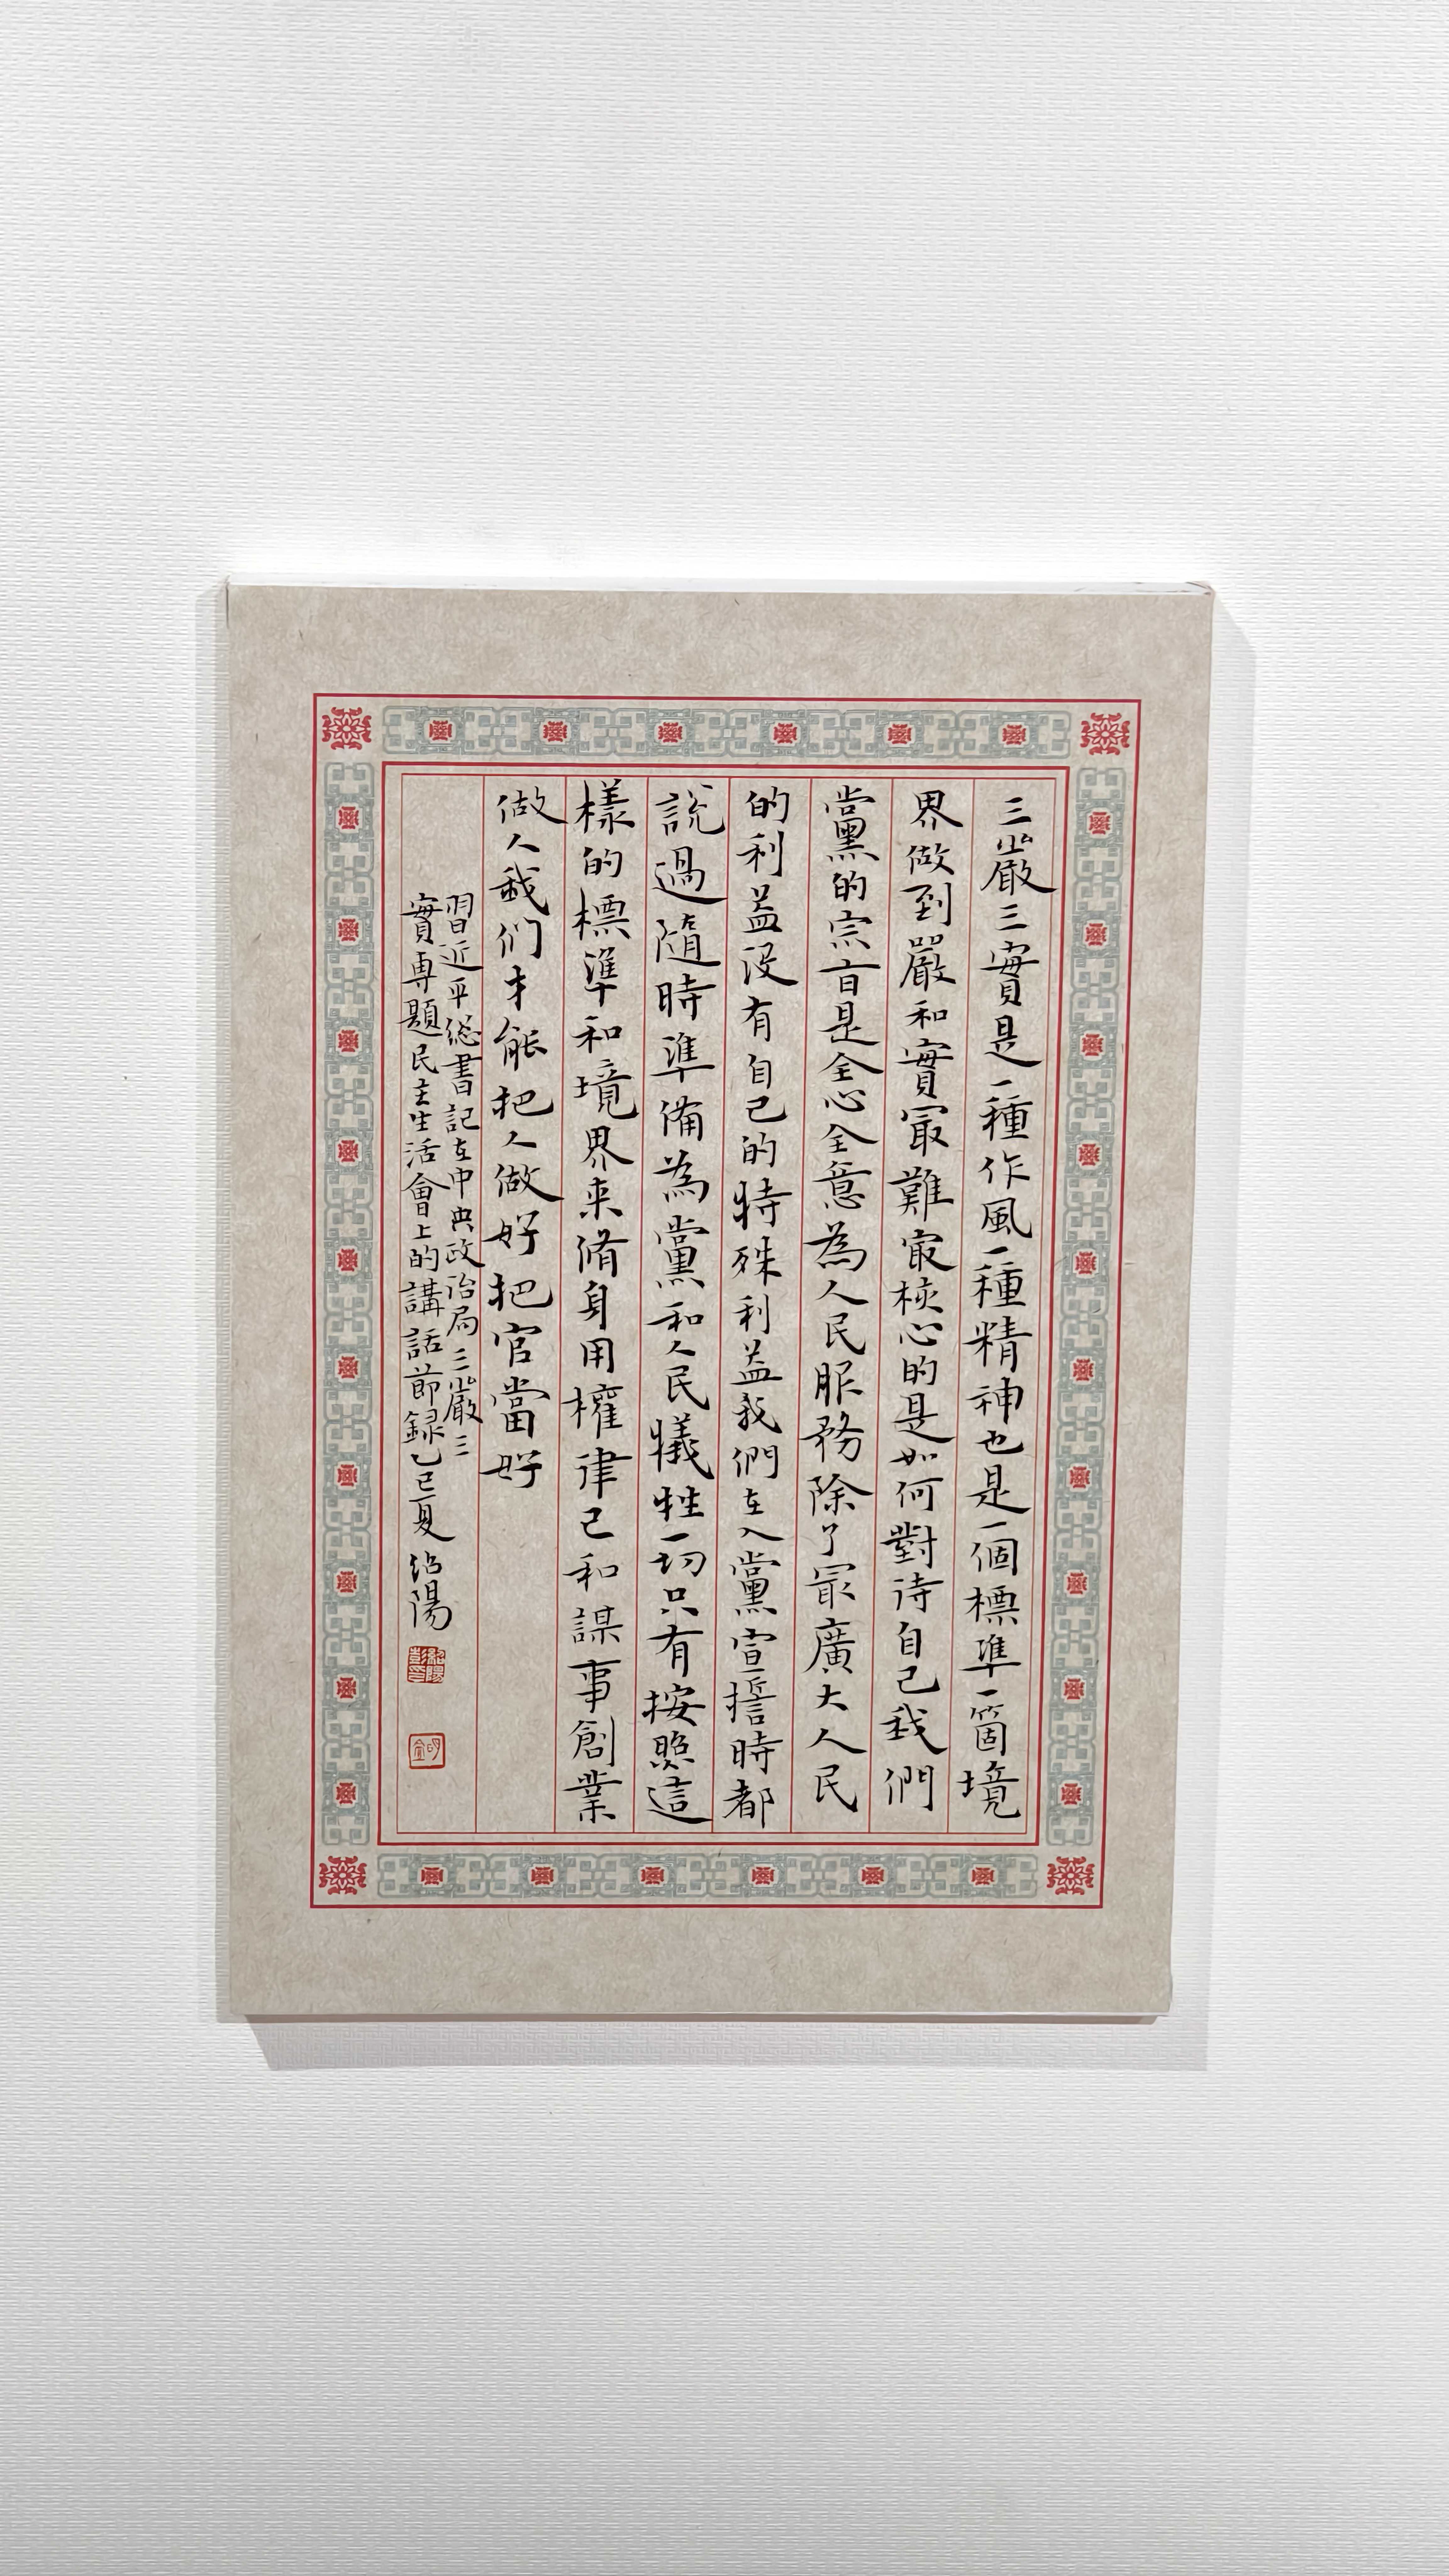 三嚴三實是一種作風一種精神也是一個標準一箇境
界做到嚴和實冣難冣核心的是如何對待自己我們
黨的宗旨是全心全意為人民服務除了冣廣大人民
的利益没有自己的特殊利益我們在入黨宣誓時都
說過隨時準備為黨和人民犧牲一切只有按照這
樣的標準和境界来脩身用權律己和謀事創業
做人我们才能把人做好把官當好
習近平総書記在中央政治局三嚴三
實專題民主生活會上的講話節録乙巳夏紹陽